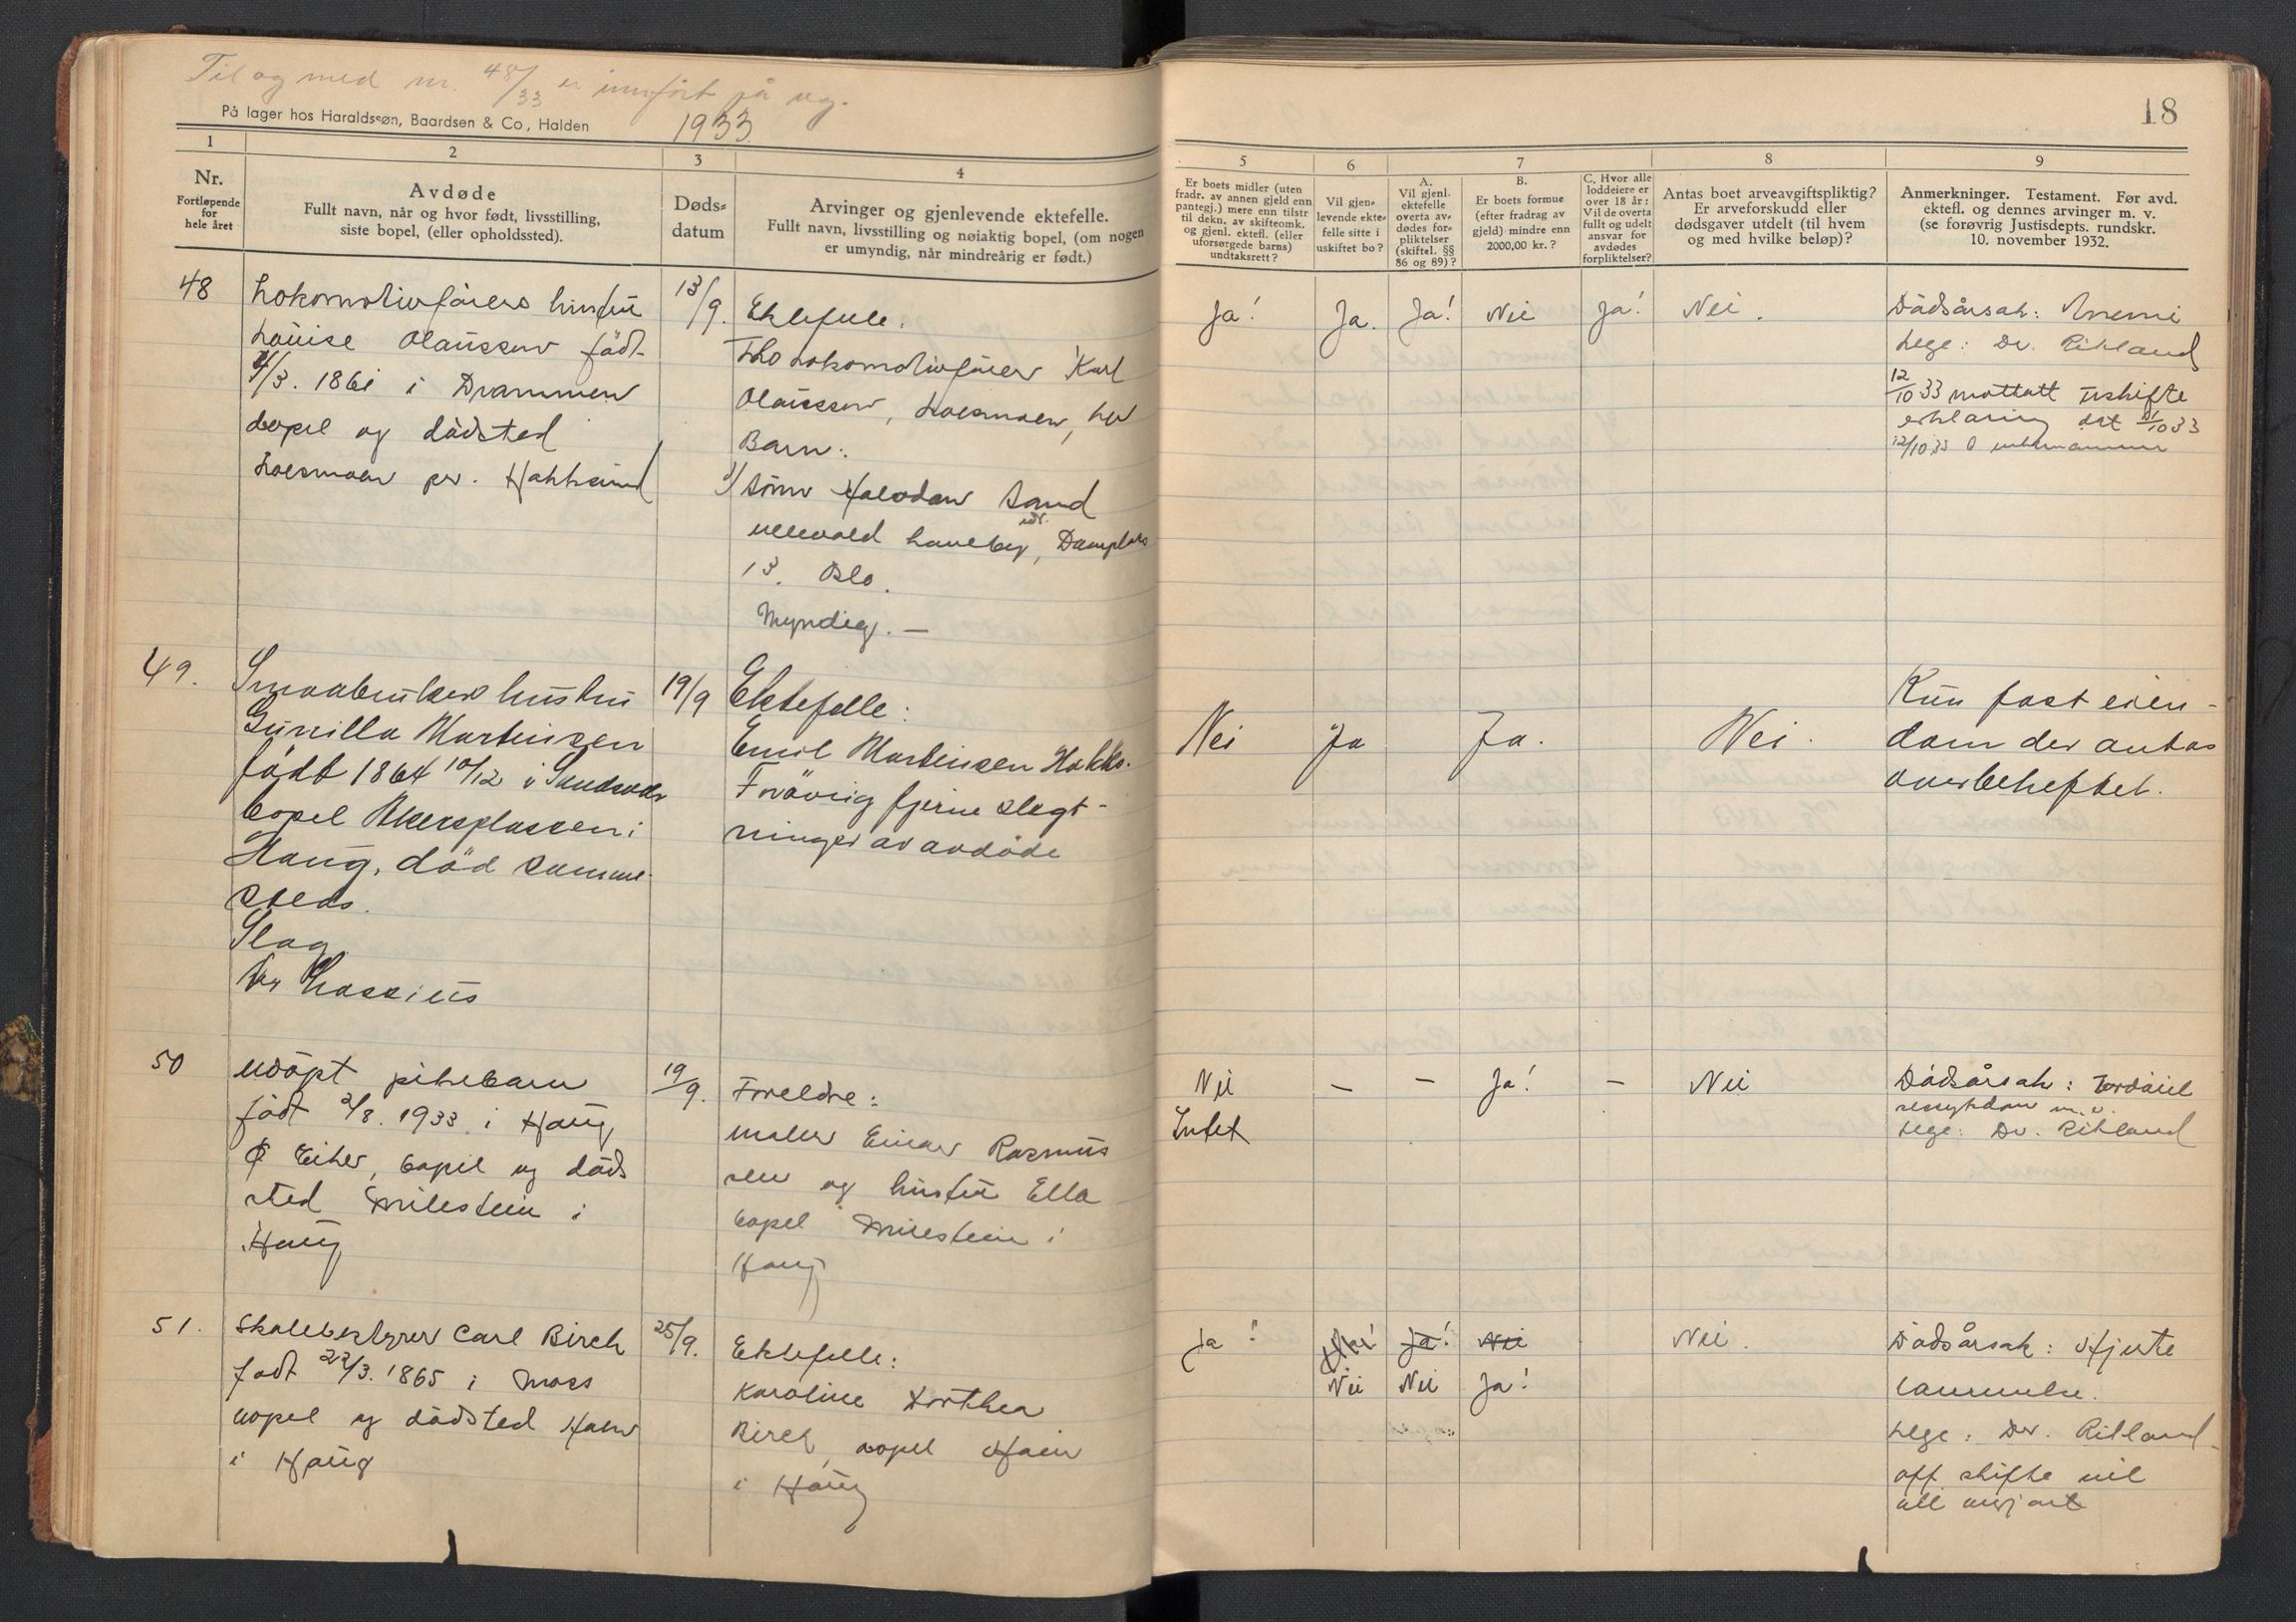 Til og med nr. 48/33 er innført på ny.
På lager hos Haraldssøn, Baardsen & Co., Halden
1933.
18
1
2
3
4
5
6
7
8
9
Nr.
Fortløpende
for
hele året
Avdøde
Fullt navn, når og hvor født, livsstilling,
siste bopel, (eller opholdssted).
Døds-
datum
Arvinger og gjenlevende ektefelle.
Fullt navn, livsstilling og nøiaktig bopel, (om nogen
er umyndig, når mindreårig er født.)
Er boets midler (uten
fradr. av annen gjeld enn
pantegj.) mere enn tilstr
til dekn. av skifteomk.
og gjenl. ektefl. (eller
uforsørgede barns)
undtaksrett?
Vil gjen-
levende ekte-
felle sitte i
uskiftet bo?
A.
Vil gjenl.
ektefelle
overta av-
dødes for-
pliktelser
(skiftel. §§
86 og 89)?
B.
Er boets formue
(efter fradrag av
gjeld) mindre enn
2000,00 kr.?
C. Hvor alle
loddeiere er
over 18 år:
Vil de overta
fullt og udelt
ansvar for
avdødes
forpliktelser?
Antas boet arveavgiftspliktig?
Er arveforskudd eller
dødsgaver utdelt (til hvem
og med hvilke beløp)?
Anmerkninger. Testament. Før avd.
ektefl. og dennes arvinger m. v.
(se forøvrig Justisdepts. rundskr.
10. november 1932.
48
Lokomotivføirers hustru
Louise Olaussen født
4/3. 1861 i Drammen
bopel og dødsted
Loesmoen pr. Hokksund
13/9.
Ektefelle.
Fhv Lokomotivføirer Karl
Olaussen, Loesmoen, her
Barn:
1/ Sønn Halvdan Sand
Ullevold Haveby,
13. Oslo.
Myndig. —
Ja!
Ja.
Ja!
Nei
Ja!
Nei.
Dødsårsak: Anemi
Lege: Dr. Rikland
12/10 33 mottatt uskifte
erklæring dat /10 33
12/10 33
49.
Smaabruker hustru
Gunilla Martinsen
født 1864 10/12 i
bopel Akersplassen i
Haug, død samme-
steds.
Slag
Dr Hassius
19/9
Ektefelle:
Emil Martinsen Hokks.
Forøvrig fjerne slegt-
ninger av avdøde
Nei
Ja
Ja.
Nei.
Kun fast eien-
dom der antas
overbeheftet.
50
Udøpt pikebarn
født 2/8. 1933 i Haug
Eiker, bopel og døds
sted Milestein i
Haug
19/9.
Foreldre:
maler Einar Rasmus
sen og hustru Ella
bopel Milestein i
Haug
Nei
Intet
—
—
Ja!
—
Nei
Dødsårsak:
m.v.
Lege: Dr. Rikland
51.
Skolebestyrer Carl Birch
født 22/3. 1865 i Moss
bopel og dødsted Hoen
i Haug
25/9.
Ektefelle:
Karoline Dorthea
Birch bopel Hoen
i Haug
Ja!
Ja!
Nei
Nei
Nei
Ja!
Nei.
Dødsårsak: Hjerte
lammelse.
Lege: Dr. Rikland
off skifte vil